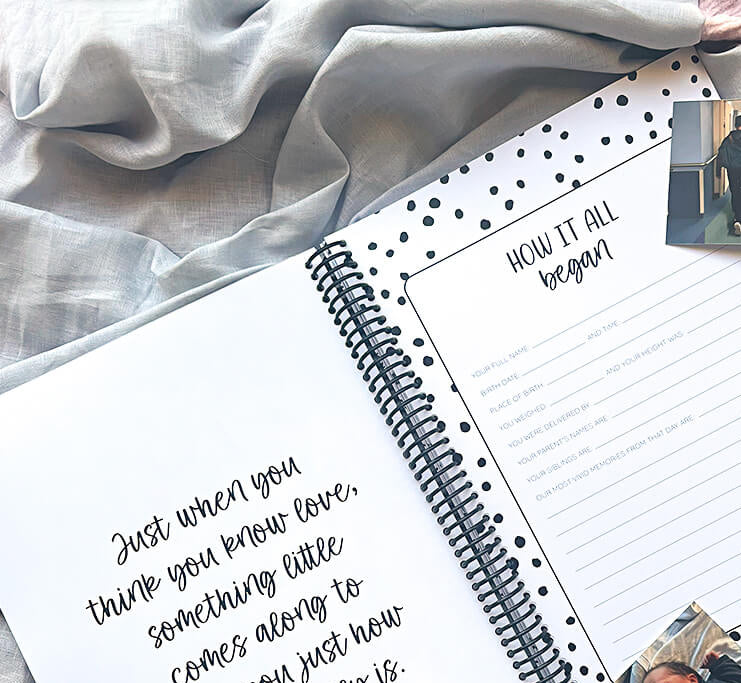 Just when you
think you know love,
something little
comes along to
you just how
is.
HOW IT ALL
began
YOUR FULL NAME
BIRTH DATE AND TIME
PLACE OF BIRTH
YOU WEIGHED AND YOUR HEIGHT WAS
YOU WERE DELIVERED BY
YOUR PARENT'S NAMES ARE
YOUR SIBLINGS ARE
OUR MOST VIVID MEMORIES FROM THAT DAY ARE